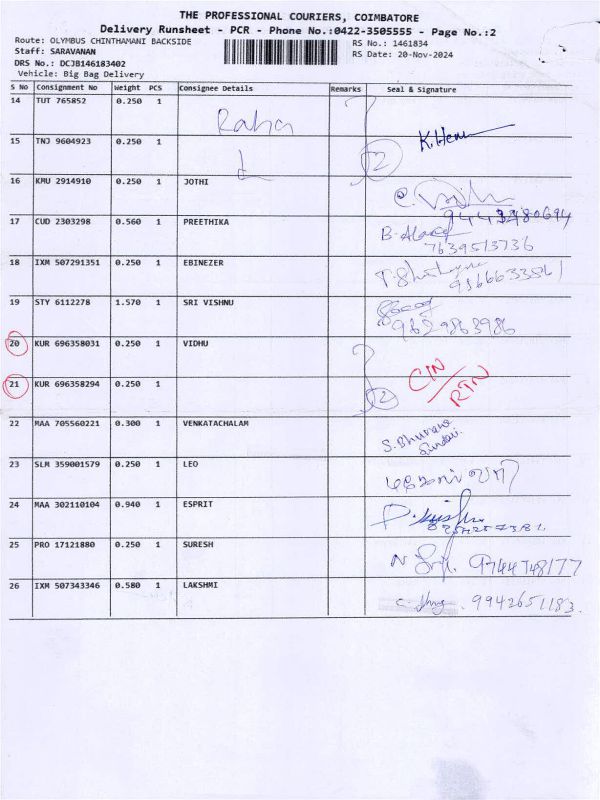 THE PROFESSIONAL COURIERS, COIMBATORE
Delivery Runsheet - PCR - Phone No.:0422-3505555 - Page No.:2
Route: OLYMBUS CHINTHAMANI BACKSIDE RS No.: 1461834
Staff: SARAVANAN RS Date: 20-Nov-2024
DRS No.: DCJB146183402
Vehicle: Big Bag Delivery
S No Consignment No Weight PCS Consignee Details Remarks Seal & Signature
14 TUT 765852 0.250 1
15 TNJ 9604923 0.250 1 2 K.Hem
16 KMU 2914910 0.250 1 JOTHI
17 CUD 2303298 0.560 1 PREETHIKA 7639513736
18 IXM 507291351 0.250 1 EBINEZER
19 STY 6112278 1.570 1 SRI VISHNU 9629863986
20 KUR 696358031 0.250 1 VIDHU CIN
21 KUR 696358294 0.250 1 2 RTN
22 MAA 705560221 0.300 1 VENKATACHALAM S.Bhuvana Sundari
23 SLM 359001579 0.250 1 LEO
24 MAA 302110104 0.940 1 ESPRIT
25 PRO 17121880 0.250 1 SURESH 9744748177
26 IXM 507343346 0.580 1 LAKSHMI 9942651183